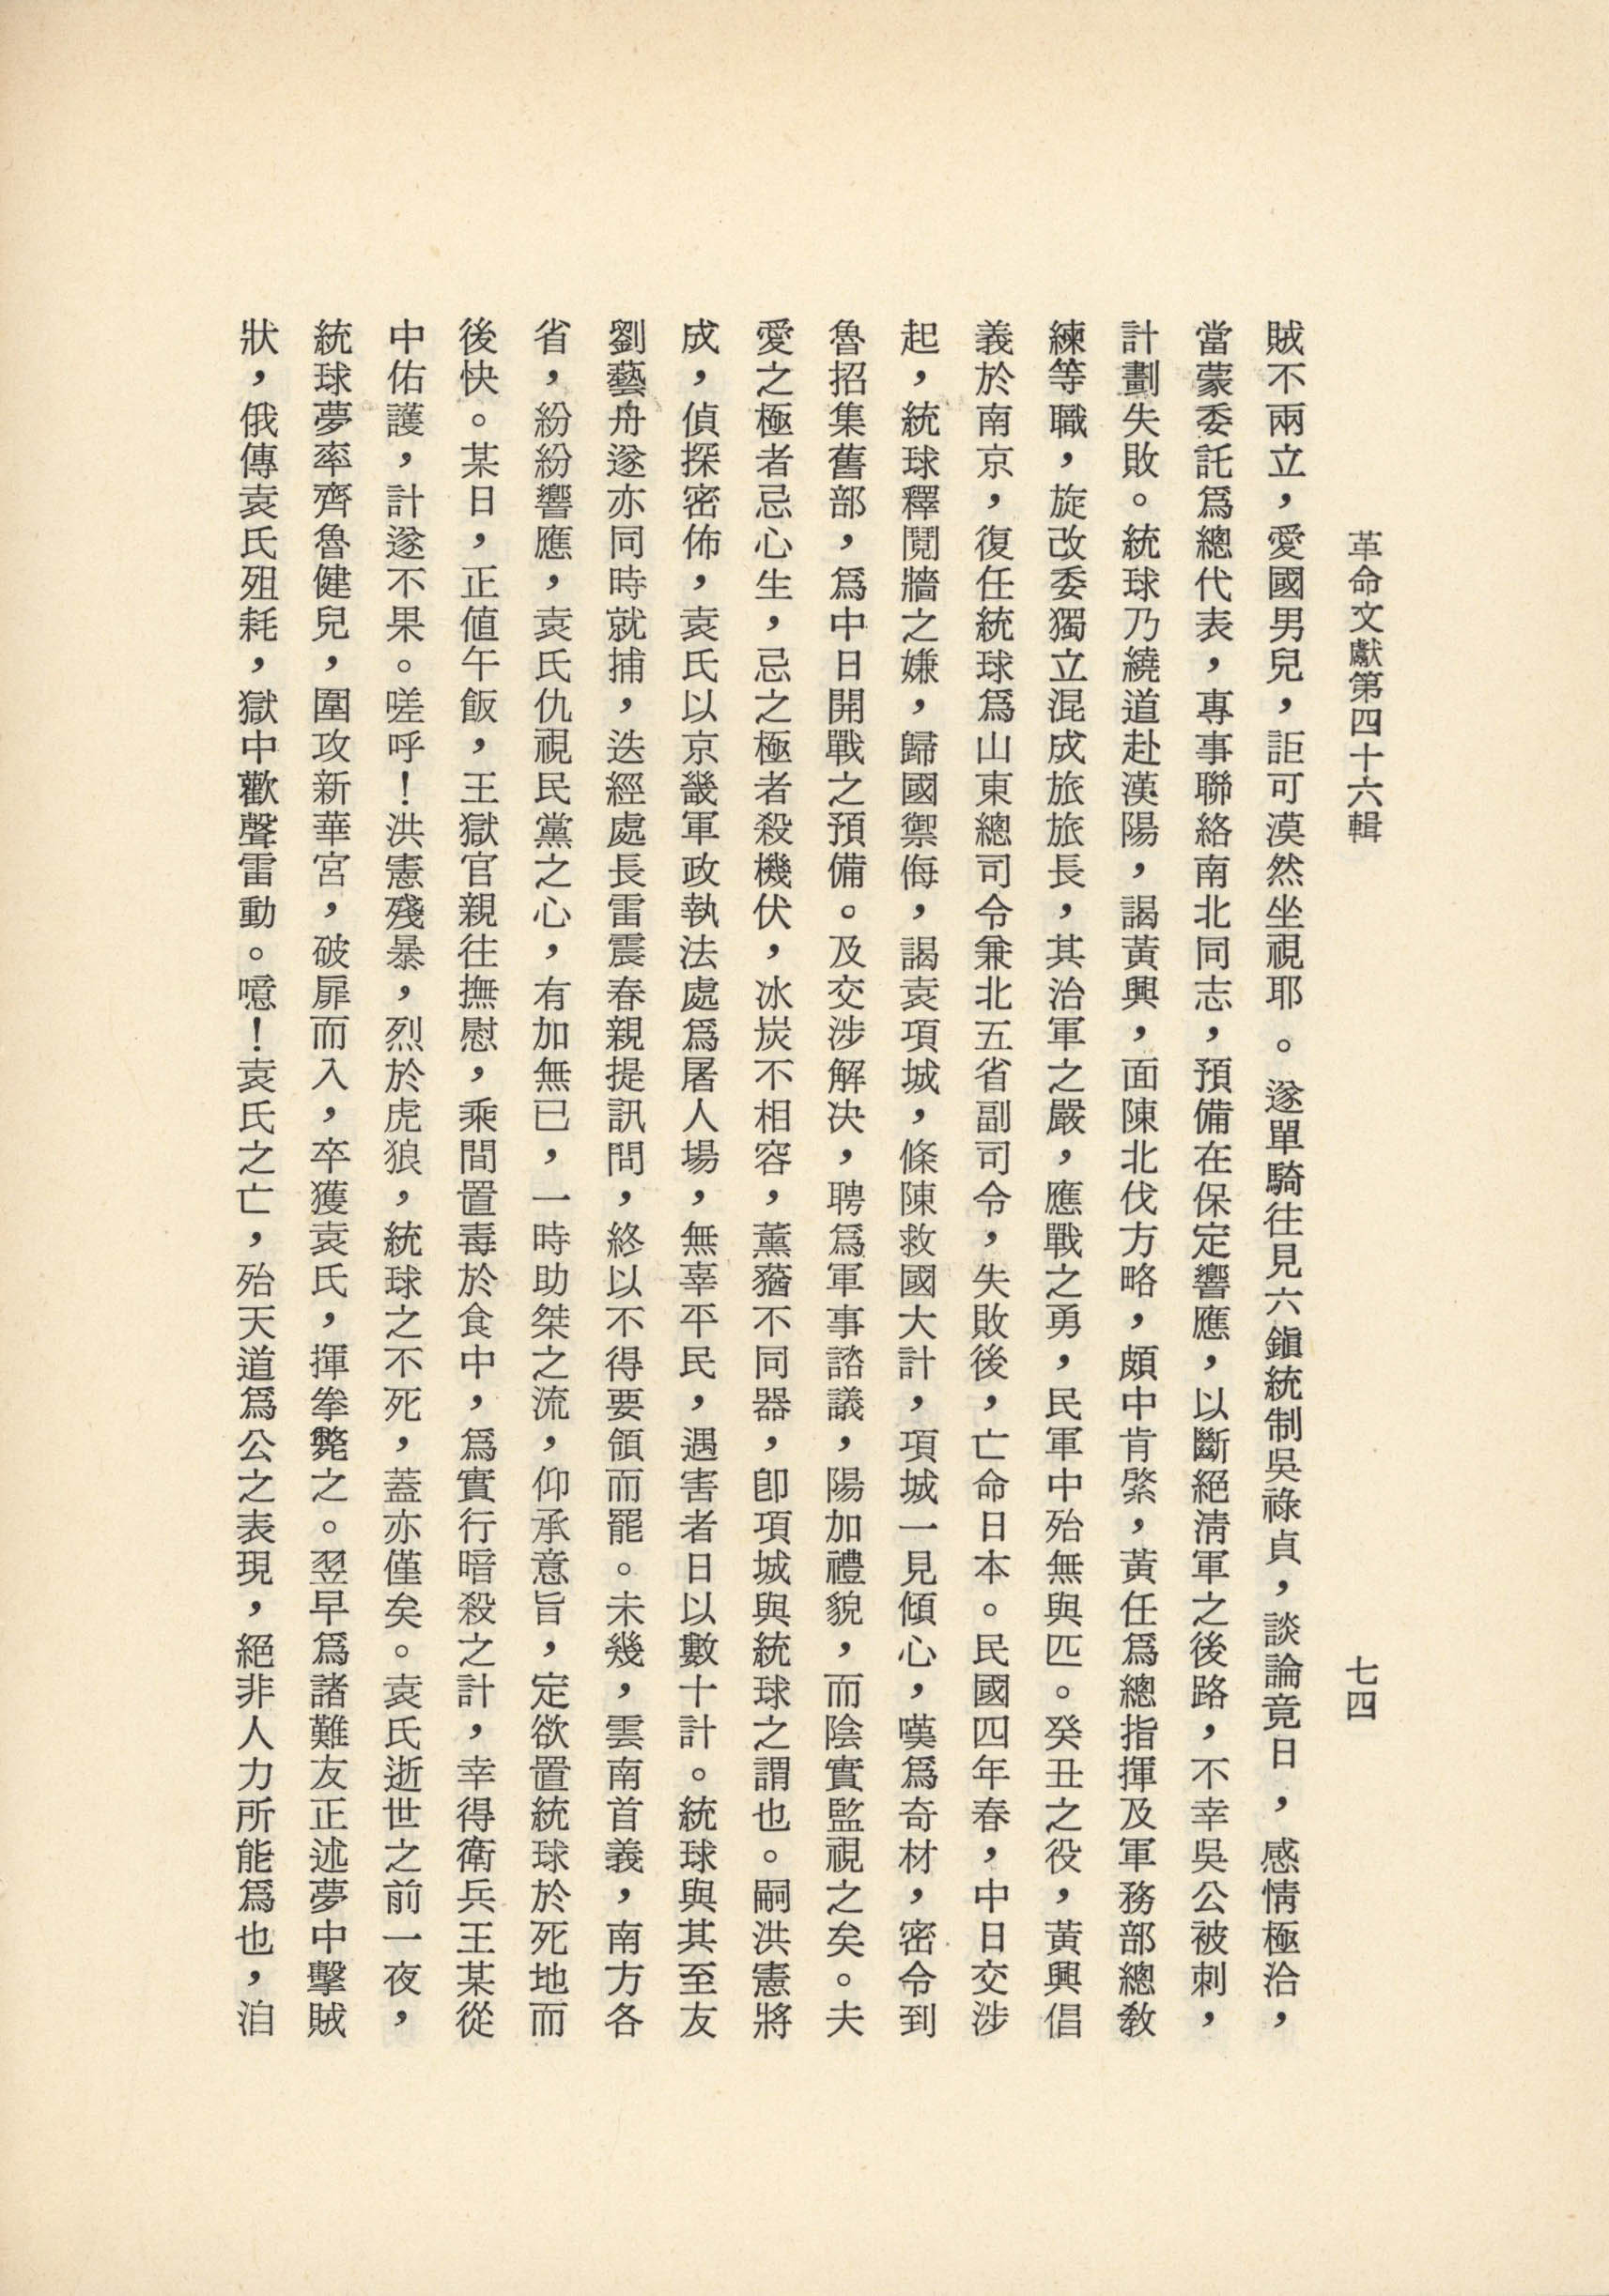 革命文獻第四十六輯
七四
賊不兩立，愛國男兒，詎可漠然坐視耶。遂單騎往見六鎭統制吳祿貞，談論竟日，感情極洽，
當蒙委託爲總代表，專事聯絡南北同志，預備在保定響應，以斷絕淸軍之後路，不幸吳公被刺，
計劃失敗。統球乃繞道赴漢陽，謁黃興，面陳北伐方略，頗中肯綮，黃任爲總指揮及軍務部總敎
練等職，旋改委獨立混成旅旅長，其治軍之嚴，應戰之勇，民軍中殆無與匹。癸丑之役，黃興倡
義於南京，復任統球爲山東總司令兼北五省副司令，失敗後，亡命日本。民國四年春，中日交涉
起，統球釋鬩牆之嫌，歸國禦侮，謁袁項城，條陳救國大計，項城一見傾心，嘆爲奇材，密令到
魯招集舊部，爲中日開戰之預備。及交涉解決，聘爲軍事諮議，陽加禮貌，而陰實監視之矣。夫
愛之極者忌心生，忌之極者殺機伏，冰炭不相容，薰蕕不同器，卽項城與統球之謂也。嗣洪憲將
成，偵探密佈，袁氏以京畿軍政執法處爲屠人場，無辜平民，遇害者日以數十計。統球與其至友
劉藝舟遂亦同時就捕，迭經處長雷震春親提訊問，終以不得要領而罷。未幾，雲南首義，南方各
省，紛紛響應，袁氏仇視民黨之心，有加無已，一時助桀之流，仰承意旨，定欲置統球於死地而
後快。某日，正値午飯，王獄官親往撫慰，乘間置毒於食中，爲實行暗殺之計，幸得衛兵王某從
中佑護，計遂不果。嗟呼！洪憲殘暴，烈於虎狼，統球之不死，蓋亦僅矣。袁氏逝世之前一夜，
統球夢率齊魯健兒，圍攻新華宮，破扉而入，卒獲袁氏，揮拳斃之。翌早爲諸難友正述夢中擊賊
狀，俄傳袁氏殂耗，獄中歡聲雷動。噫！袁氏之亡，殆天道爲公之表現，絕非人力所能爲也，洎